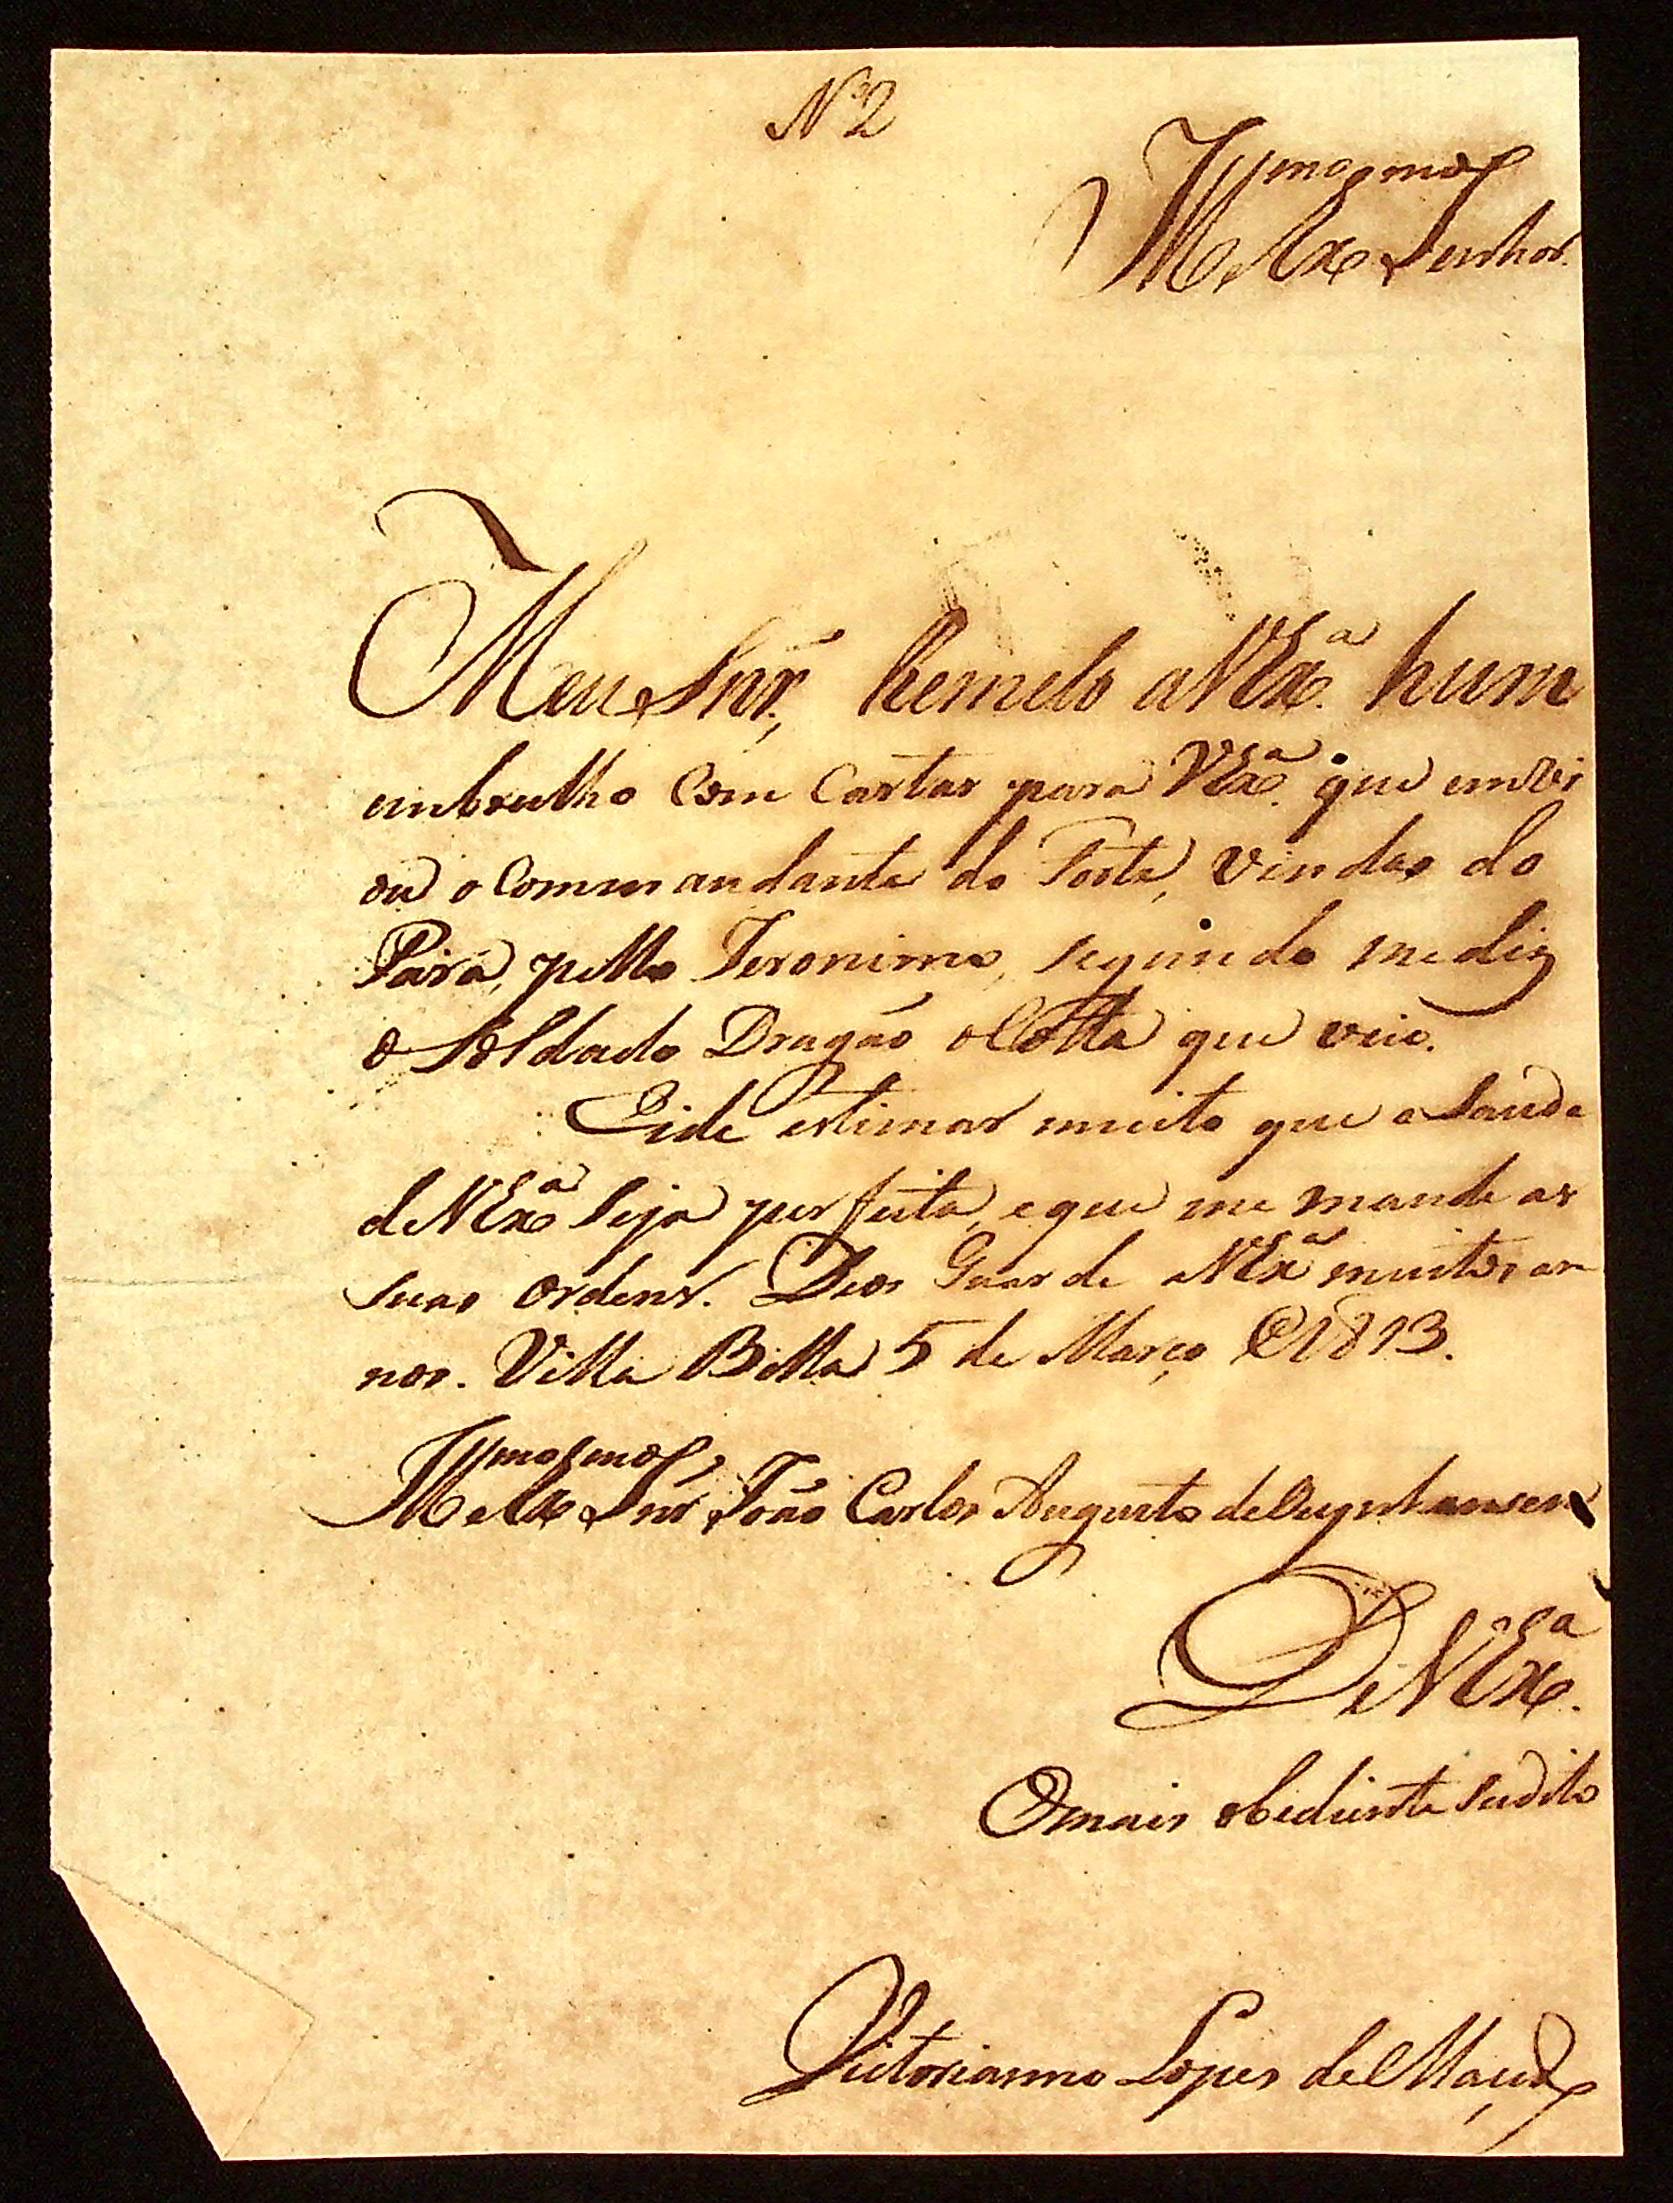 Nº 2
Illmo e Exmo Senhor.
Meu Snr., Remeto a V Exa. hum
embrulho Com Cartas para V Exa. que envi
ou o Commandante do Forte, vindas do
Pará, pello Jeronimo, segundo me diz
o Soldado Dragão o Cotta que veio.
Eide estimar muito que a Saude
de V Exa Seja perfeita, e que me mande as
suas ordens. Deos Guarde a V Exa muitos an
nos. Villa Bella 5 de Março de 1813.
Illmo e Exmo Snr João Carlos Augusto de Oeynhausen
De V Exa.
O mais obediente Sudito
Victorianno Lopes de Macedo